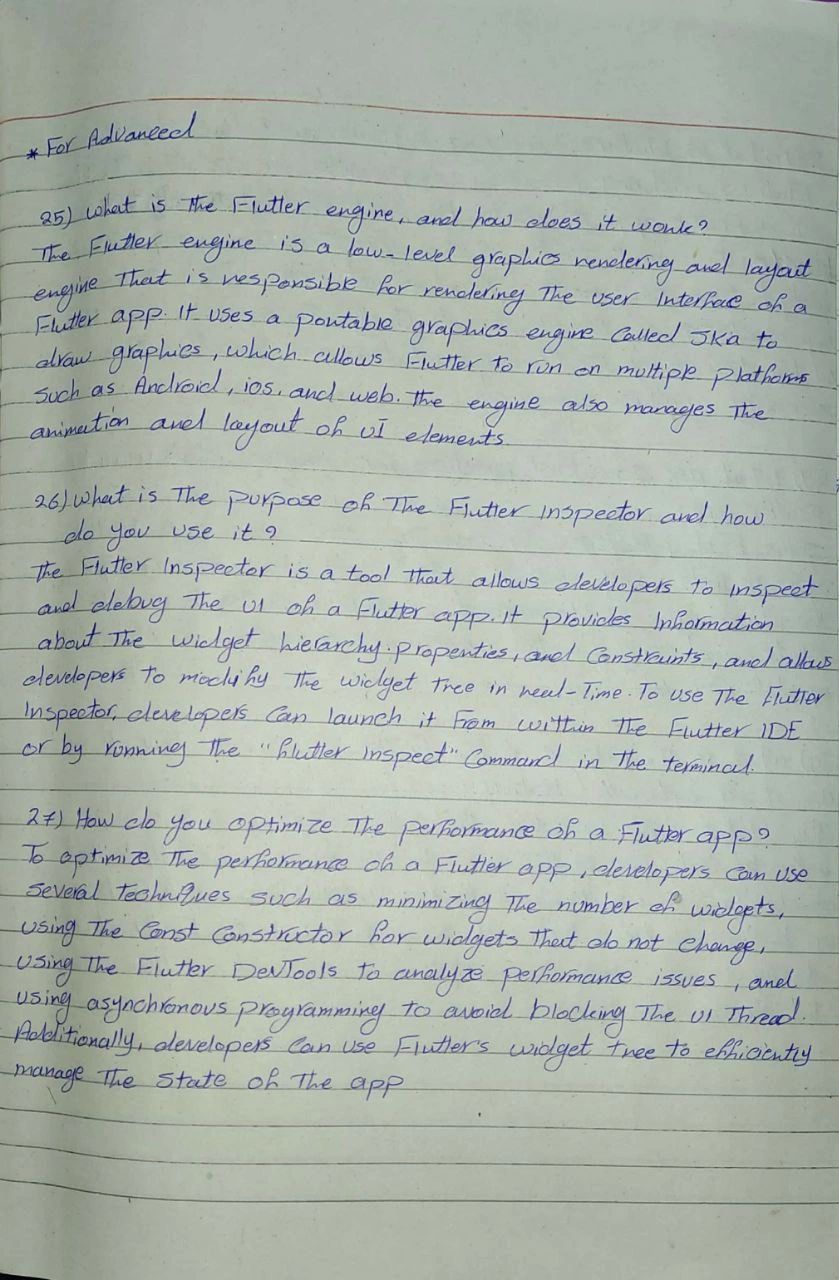 * For Advanced
25) What is The Flutter engine, and how does it work?
The Flutter engine is a low-level graphics rendering and layout
engine That is responsible for rendering The user Interface of a
Flutter app. It uses a portable graphics engine Called Ska to
draw graphics, which allows Flutter to run on multiple Platforms
such as Android, ios, and web. The engine also manages The
animation and layout of UI elements.
26) What is The purpose of The Flutter inspector and how
do you use it?
The Flutter Inspector is a tool That allows developers to inspect
and debug The UI of a Flutter app. It provides Information
about The widget hierarchy. properties, and Constraints, and allows
developers to modify The widget tree in real-Time. To use The Flutter
Inspector, developers Can launch it from within The Flutter IDE
or by running The "flutter inspect" Command in The terminal.
27) How do you optimize The performance of a Flutter app?
To optimize The performance of a Flutter app, developers Can use
Several Techniques such as minimizing The number of widgets,
using The Const Constructor for widgets That do not Change,
using The Flutter DevTools to analyze performance issues, and
using asynchronous programming to avoid blocking The UI Thread.
Additionally, developers Can use Flutter's widget tree to efficiently
manage The State of The app